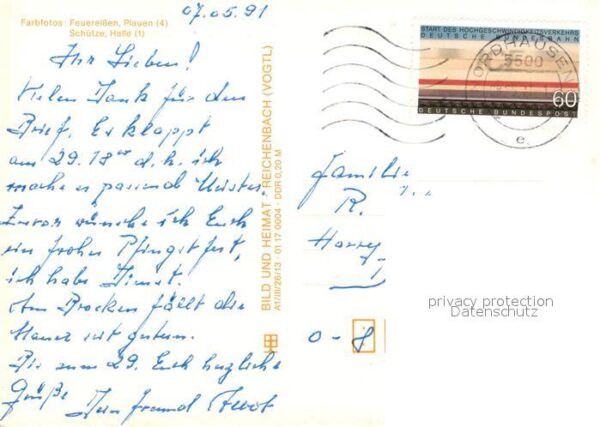 07.05.91
Farbfotos: Feuereißen, Plauen (4)
Schütze, Halle (1)
Ihr Lieben!
Vielen Dank für den
Brief. Es klappt
am 29. 18⁰⁰ d.h. ich
mache es passend
Zuvor wünsche ich Euch
ein frohes Pfingstfest,
ich habe Dienst.
Am Brocken fällt die
Mauer seit gestern.
Bis zum 29. Euch herzliche
Grüße Dein Freund
BILD UND HEIMAT REICHENBACH (VOGTL)
A1/III/26/13 · 01 17 0004 · DDR 0,20 M
START DES HOCHGESCHWINDIGKEITSVERKEHRS
DEUTSCHE BUNDESBAHN
60
DEUTSCHE BUNDESPOST
NORDHAUSEN
5500
e
Familie
R.
Harry
O-8
privacy protection
Datenschutz